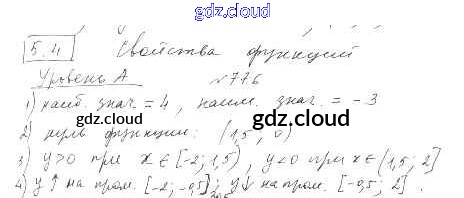 gdz.cloud
5.4 Свойства функций
Уровень А №776
1) наиб. знач. = 4, наим. знач. = -3
gdz.cloud gdz.cloud
2) нуль функции: (1,5, 0)
3) y>0 при x∈[-2; 1,5), y<0 при x∈(1,5; 2]
4) y↑ на пром. [-2; -0,5]; y↓ на пром. [-0,5; 2].
gdz.cloud gdz.cloud